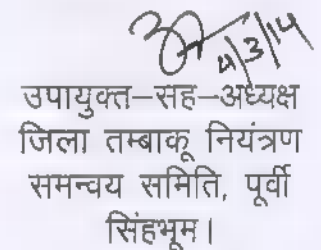 4/3/14
उपायुक्त–सह–अध्यक्ष
जिला तम्बाकू नियंत्रण
समन्वय समिति, पूर्वी
सिंहभूम।